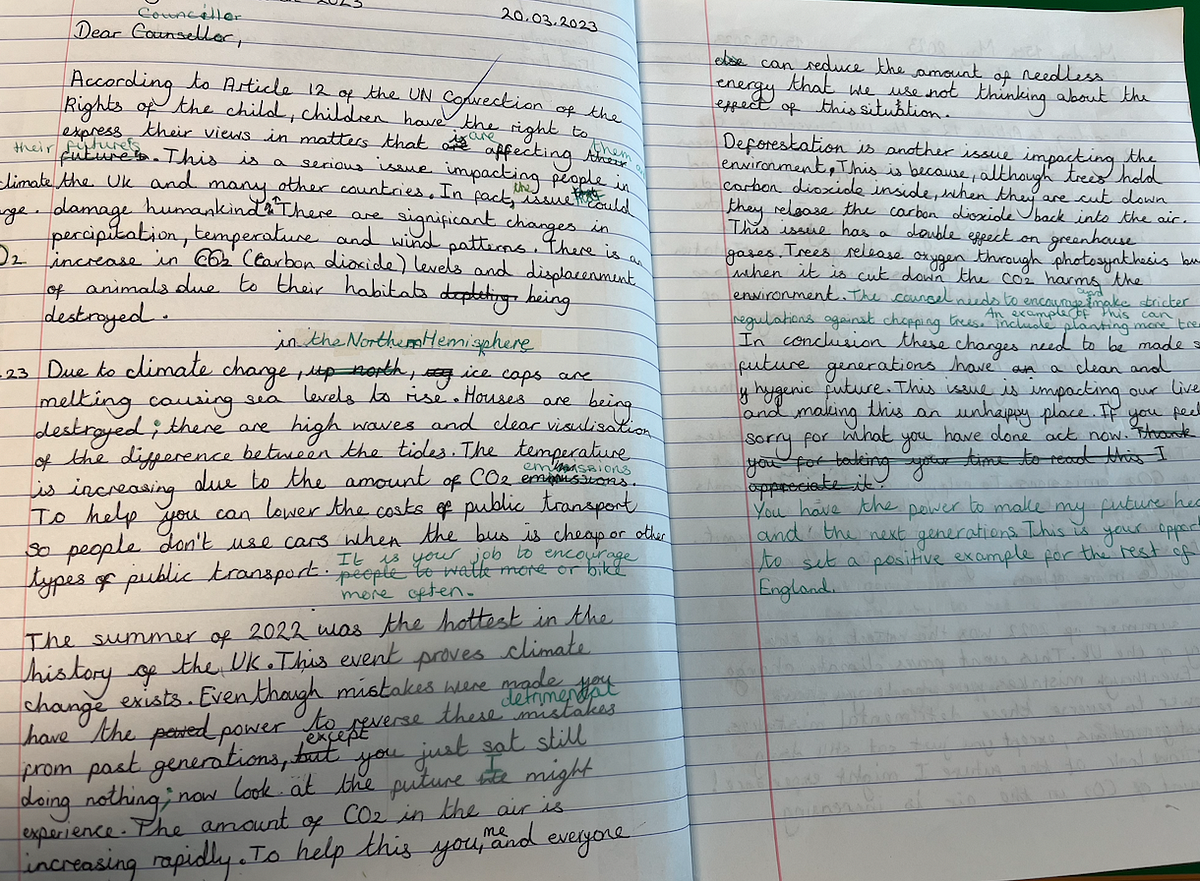 20.03.2023
Counciller
Dear Counsellor,
According to Article 12 of the UN Convection of the
Rights of the child, children have the right to
express their views in matters that are affecting them
their futures. This is a serious issue impacting people in
climate the UK and many other countries. In fact, the issue could
damage humankind. There are significant changes in
percipitation, temperature and wind patterns. There is an
increase in CO2 (Carbon dioxide) levels and displacenment
of animals due to their habitats depleting being
destroyed.
in the Northern Hemisphere
23 Due to climate change, up north, ice caps are
melting causing sea levels to rise. Houses are being
destroyed; there are high waves and clear visulisation
of the difference between the tides. The temperature
is increasing due to the amount of CO2 emissions.
To help you can lower the costs of public transport
so people don't use cars when the bus is cheap or other
types of public transport. It is your job to encourage
people to walk more or bike
more often.
The summer of 2022 was the hottest in the
history of the UK. This event proves climate
change exists. Even though mistakes were made you
detrimental
have the power to reverse these mistakes
from past generations, except you just sat still
doing nothing; now look at the future I might
experience. The amount of CO2 in the air is
increasing rapidly. To help this you, me and everyone
else can reduce the amount of needless
energy that we use not thinking about the
effect of this situation.
Deforestation is another issue impacting the
environment. This is because, although trees hold
carbon dioxide inside, when they are cut down
they release the carbon dioxide back into the air.
This issue has a double effect on greenhouse
gases. Trees release oxygen through photosynthesis but
when it is cut down the CO2 harms the
environment. The councel needs to encourage and make stricter
regulations against chopping trees. An example of this can include planting more
In conclusion these changes need to be made
future generations have a clean and
hygenic future. This issue is impacting our
and making this an unhappy place. If you feel
sorry for what you have done act now. Thank
you for taking your time to read this I
appreciate it.
You have the power to make my future
and the next generations. This is your
to set a positive example for the rest of
England.